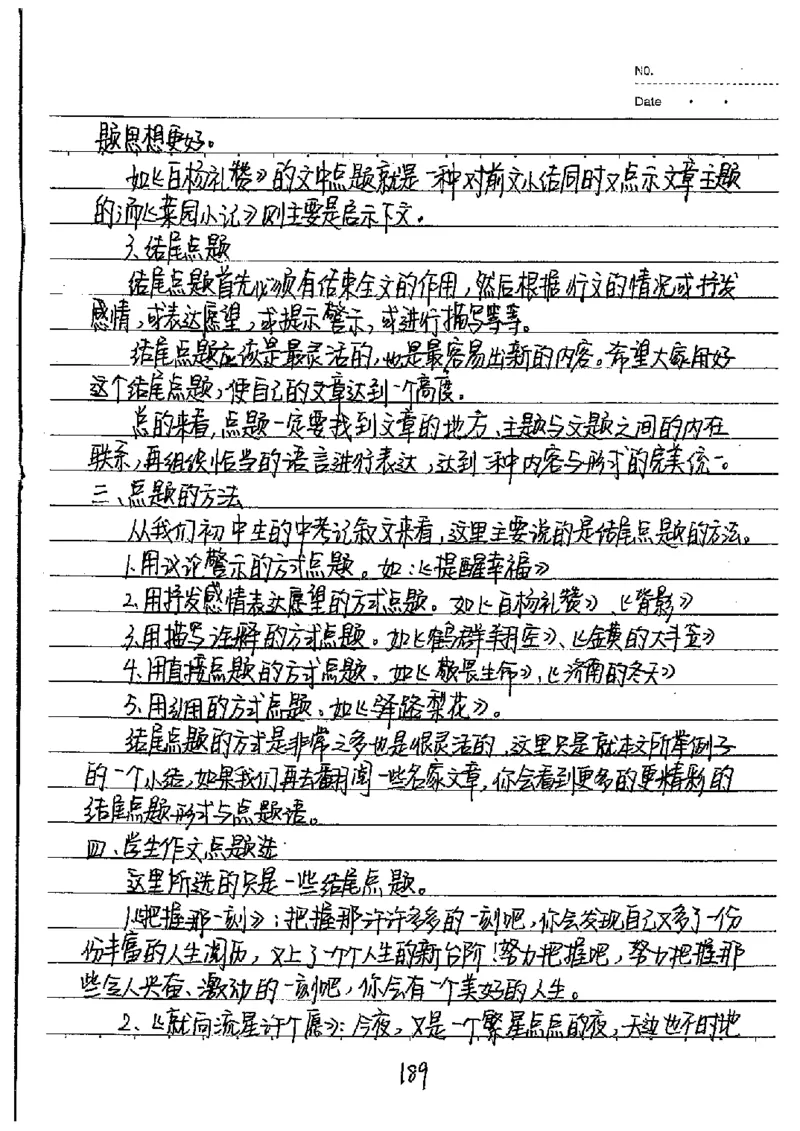 NO.
Date
题思想更好。
如《白杨礼赞》的文中点题就是一种对前文小结同时又点示文章主题
的,而《菜园小记》则主要是启示下文。
3、结尾点题
结尾点题首先必须有结束全文的作用,然后根据行文的情况或抒发
感情,或表达愿望,或提示警示,或进行描写等等。
结尾点题应该是最灵活的,也是最容易出新的内容。希望大家用好
这个结尾点题,使自己的文章达到一个高度。
总的来看,点题一定要找到文章的地方、主题与文题之间的内在
联系,再组织恰当的语言进行表达,达到一种内容与形式的完美统一。
三、点题的方法
从我们初中生的中考记叙文来看,这里主要说的是结尾点题的方法。
1、用议论警示的方式点题。如:《提醒幸福》
2、用抒发感情表达愿望的方式点题。如《白杨礼赞》、《背影》
3、用描写诠释的方式点题。如《鹤群翔空》、《金黄的大斗笠》
4、用直接点题的方式点题。如《敬畏生命》、《济南的冬天》
5、用引用的方式点题。如《驿路梨花》。
结尾点题的方式是非常之多也是很灵活的,这里只是就本文所举例子
的一个小结,如果我们再去翻阅一些名家文章,你会看到更多的更精彩的
结尾点题形式与点题语。
四、学生作文点题选
这里所选的只是一些结尾点题。
1、《把握那一刻》:把握那许许多多的一刻吧,你会发现自己又多了一份
份丰富的人生阅历,又上了一个个人生的新台阶!努力把握吧,努力把握那
些令人兴奋、激动的一刻吧,你会有一个美好的人生。
2、《就向流星许个愿》:今夜,又是一个繁星点点的夜,天边也不时地
189